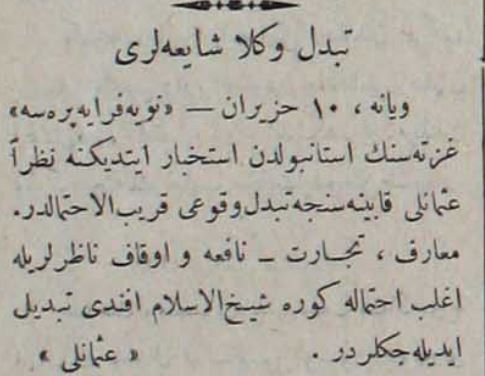 تبدل وكلا شایعه‌لری
ویانه ، ۱۰ حزیران — «نویه‌فرایه‌پره‌سه»
غزته‌سنك استانبولدن استخبار ایتدیكنه نظراً
عثمانلی قابینه‌سنجه تبدل وقوعی قریب الاحتمالدر.
معارف ، تجارت ـ نافعه و اوقاف ناظرلریله
اغلب احتماله كوره شیخ‌الاسلام افندی تبدیل
ایدیله‌جكلردر . « عثمانلی »